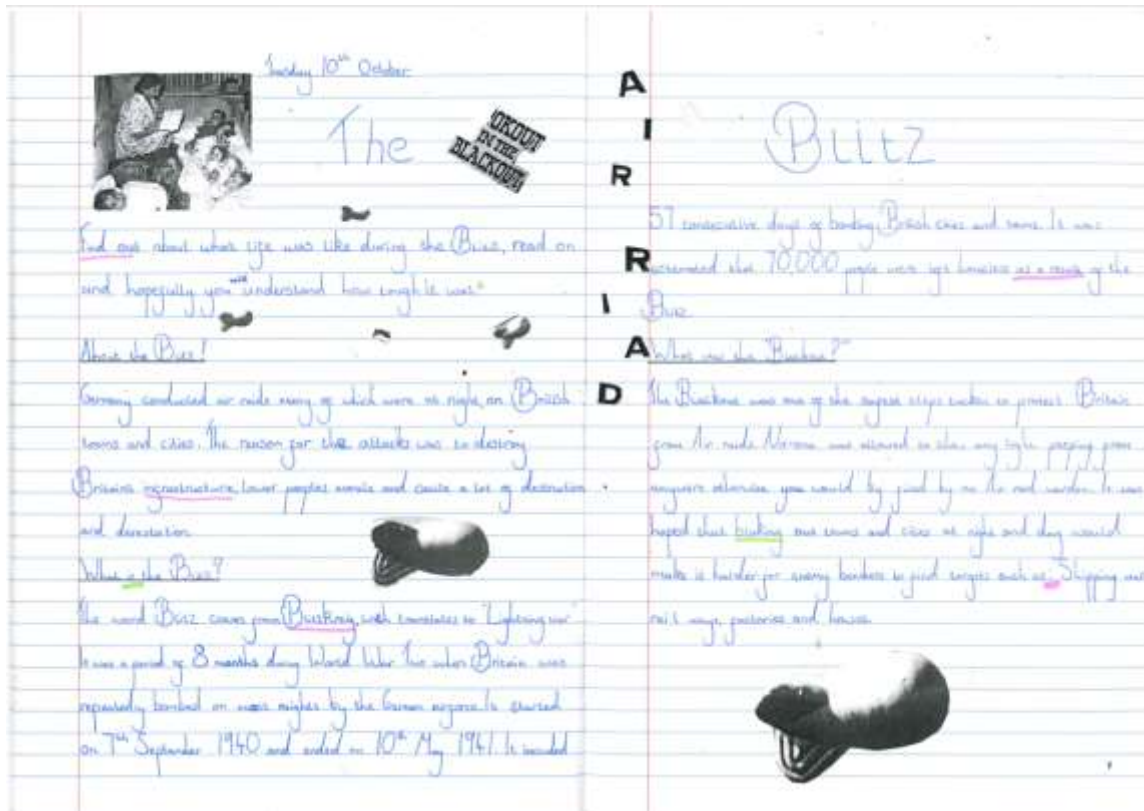 Tuesday 10th October
The
OKOUT
IN THE
BLACKOUT
Find out about what life was like during the Blitz, read on
and hopefully you will understand how tough it was.
About the Blitz!
Germany conducted air raids many of which were at night, on British
towns and cities. The reason for the attacks was to destroy
Britains infrastructure, lower peoples morale and cause a lot of destruction
and devastation
What is the Blitz?
The word Blitz comes from translates to "Lightning war"
It was a period of 8 months during World War Two when Britain was
repeatedly bombed on most nights by the German airforce. It started
on 7th September 1940 and ended on 10th May 1941. It included
AIR RAID
Blitz
57 consecutive days of bombing British cities and towns. It was
estimated that 70,000 people were left homeless as a result of the
Blitz
What was the "Blackout?"
The Blackout was one of the biggest steps taken to protect Britain
from Air raids. was allowed to show any light from
otherwise you would by an Air raid warden. It was
hoped that out towns and cities at night and day would
make it harder for enemy bombers to find targets such as: Shipping and
rail ways, factories and houses.